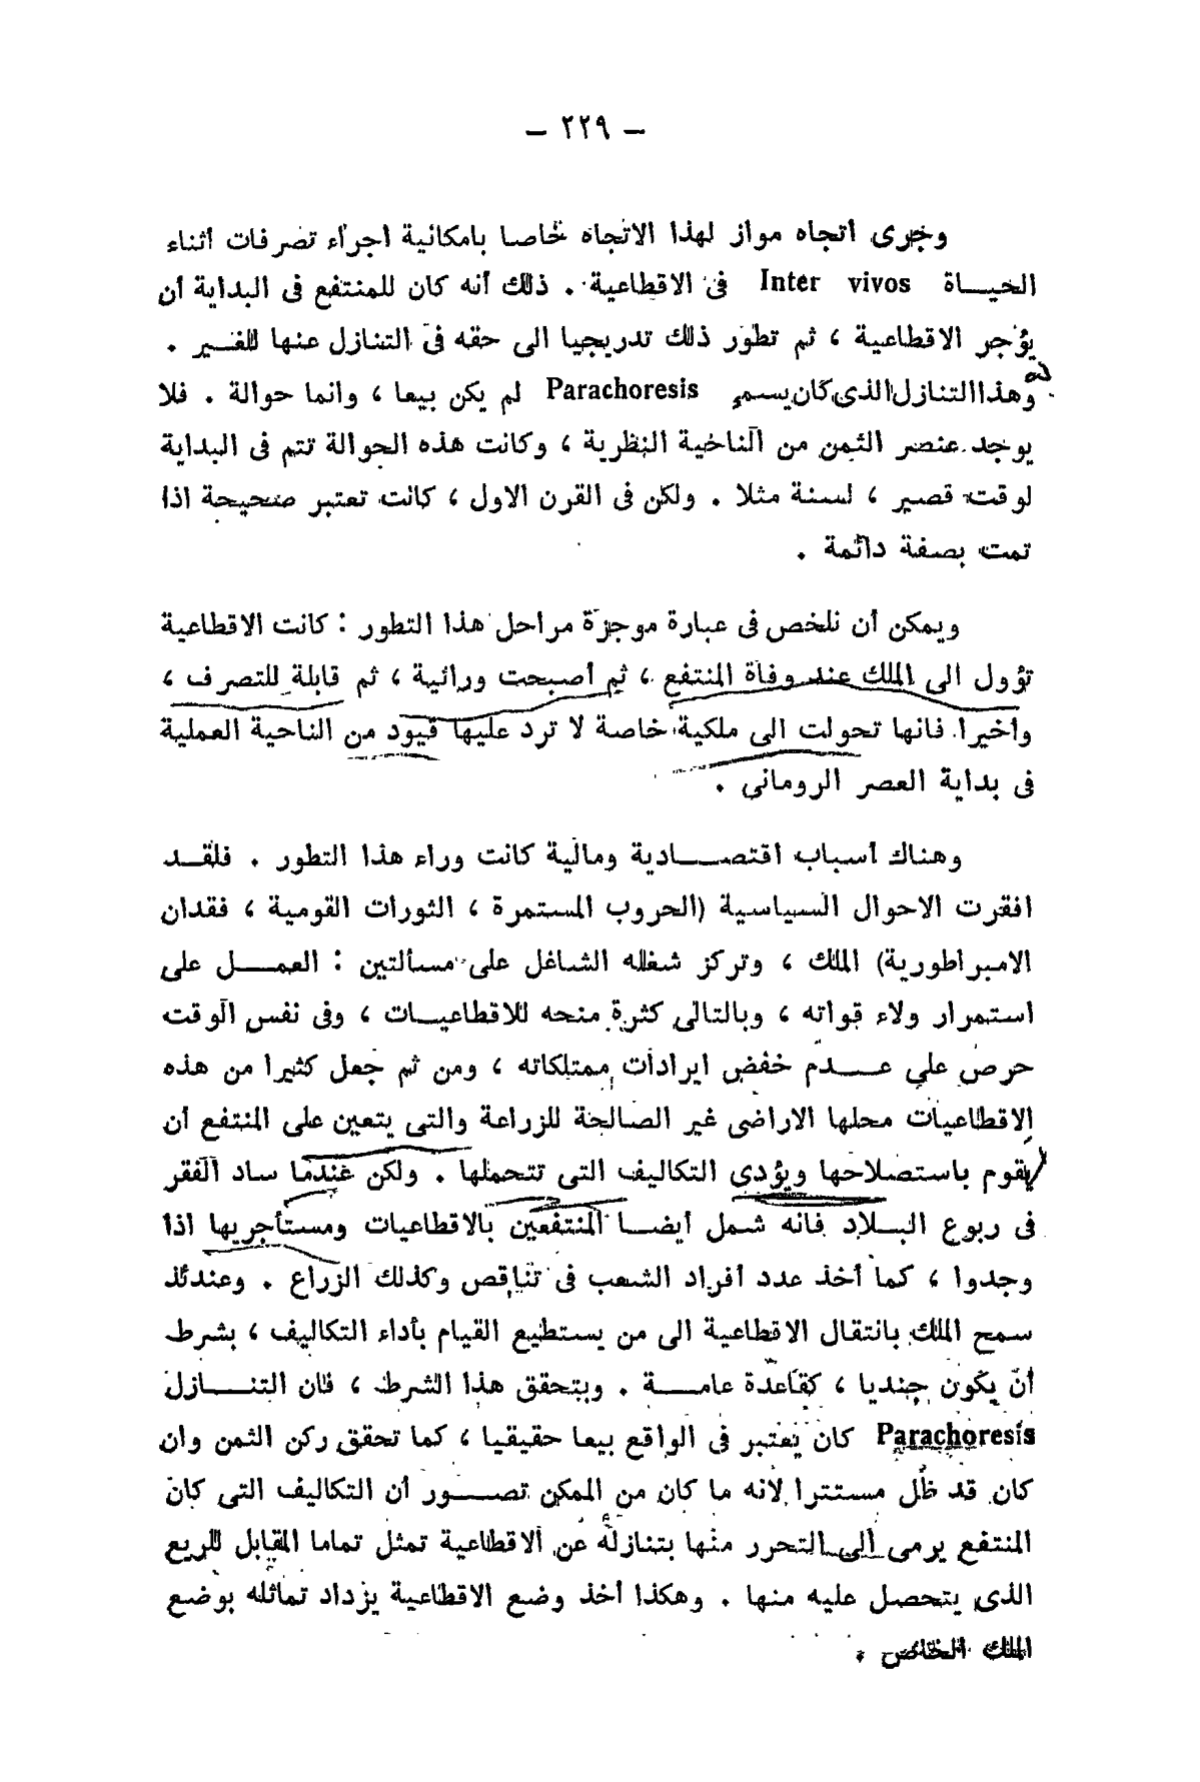 — ٢٢٩ —
وجرى اتجاه مواز لهذا الاتجاه خاصا بامكانية اجراء تصرفات أثناء
الحيـــاة Inter vivos فى الاقطاعية . ذلك أنه كان للمنتفع فى البداية أن
يؤجر الاقطاعية ، ثم تطور ذلك تدريجيا الى حقه فى التنازل عنها للغـير .
وهذا التنازل الذى كان يسمى Parachoresis لم يكن بيعا ، وانما حوالة . فلا
يوجد عنصر الثمن من الناحية النظرية ، وكانت هذه الحوالة تتم فى البداية
لوقت قصير ، لسنة مثلا . ولكن فى القرن الاول ، كانت تعتبر صحيحة اذا
تمت بصفة دائمة .
ويمكن أن نلخص فى عبارة موجزة مراحل هذا التطور : كانت الاقطاعية
تؤول الى الملك عند وفاة المنتفع ، ثم أصبحت وراثية ، ثم قابلة للتصرف ،
وأخيرا فانها تحولت الى ملكية خاصة لا ترد عليها قيود من الناحية العملية
فى بداية العصر الرومانى .
وهناك أسباب اقتصـــادية ومالية كانت وراء هذا التطور . فلقـد
افقرت الاحوال السياسية (الحروب المستمرة ، الثورات القومية ، فقدان
الامبراطورية) الملك ، وتركز شغله الشاغل على مسألتين : العمـــل على
استمرار ولاء قواته ، وبالتالى كثرة منحه للاقطاعيـات ، وفى نفس الوقت
حرص على عـــدم خفض ايرادات ممتلكاته ، ومن ثم جعل كثيرا من هذه
الاقطاعيات محلها الاراضى غير الصالحة للزراعة والتى يتعين على المنتفع أن
يقوم باستصلاحها ويؤدى التكاليف التى تتحملها . ولكن عندما ساد الفقر
فى ربوع البـلاد فانه شمل أيضـا المنتفعين بالاقطاعيات ومستأجريها اذا
وجدوا ، كما أخذ عدد أفراد الشعب فى تناقص وكذلك الزراع . وعندئذ
سمح الملك بانتقال الاقطاعية الى من يستطيع القيام بأداء التكاليف ، بشرط
أن يكون جنديا ، كقاعدة عامـــة . وبتحقق هذا الشرط ، فان التنـــازل
Parachoresis كان يعتبر فى الواقع بيعا حقيقيا ، كما تحقق ركن الثمن وان
كان قد ظل مستترا لانه ما كان من الممكن تصـــور أن التكاليف التى كان
المنتفع يرمى الى التحرر منها بتنازله عن الاقطاعية تمثل تماما المقابل للريع
الذى يتحصل عليه منها . وهكذا أخذ وضع الاقطاعية يزداد تماثله بوضع
الملك الخاص .